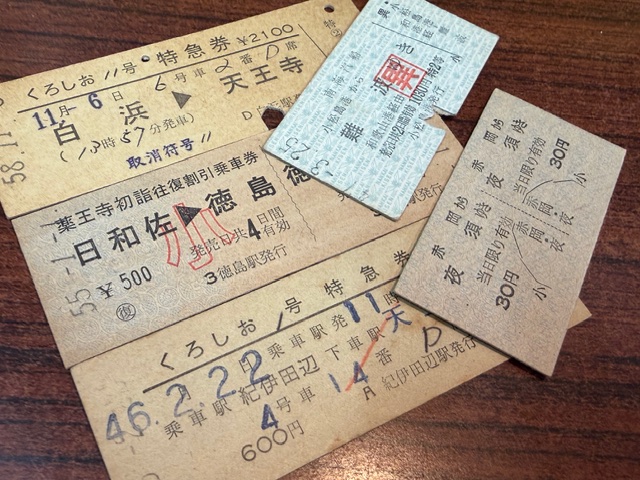 特急券 ¥2100
くろしお11号 6号車2番D席
11月-6日
白浜▶天王寺
(13時57分発車)
取消符号〃
58.11
薬王寺初詣往復割引乗車券
日和佐▶徳島
小
発売日共4日間有効
￥500
3徳島駅発行
復
55.-1.-1
くろしお1号 特急券
乗車駅発11時
46.2.22
乗車駅 紀伊田辺 下車駅 天
4号車 14番 D
600円
A 紀伊田辺駅発行
小松島港から
難波
和歌山港経由
-3.25
赤岡から
夜須ゆき
当日限り有効
30円
赤岡・夜
小
赤岡から
夜須ゆき
当日限り有効
30円
小